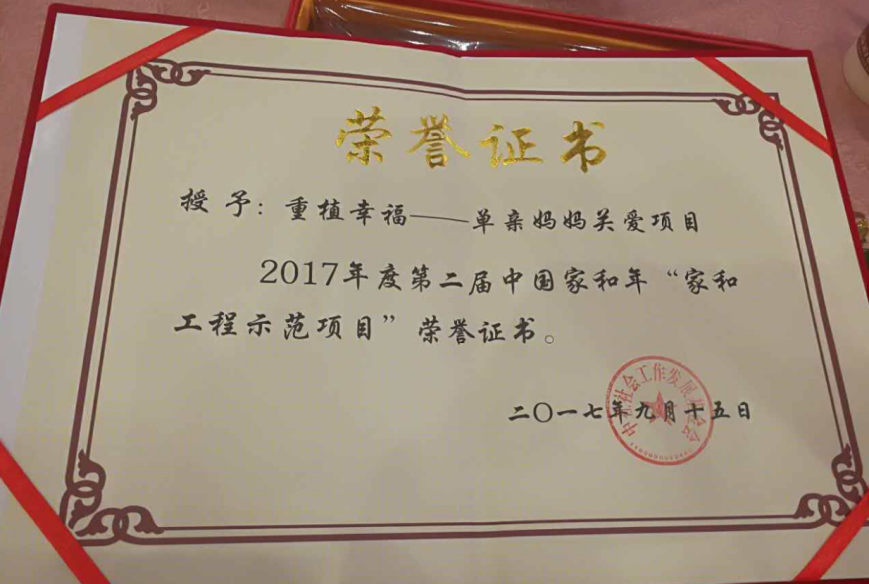 荣誉证书
授 予：重植幸福——单亲妈妈关爱项目
2017年度第二届中国家和年“家和
工程示范项目”荣誉证书。
二〇一七年九月十五日
社会工作发展